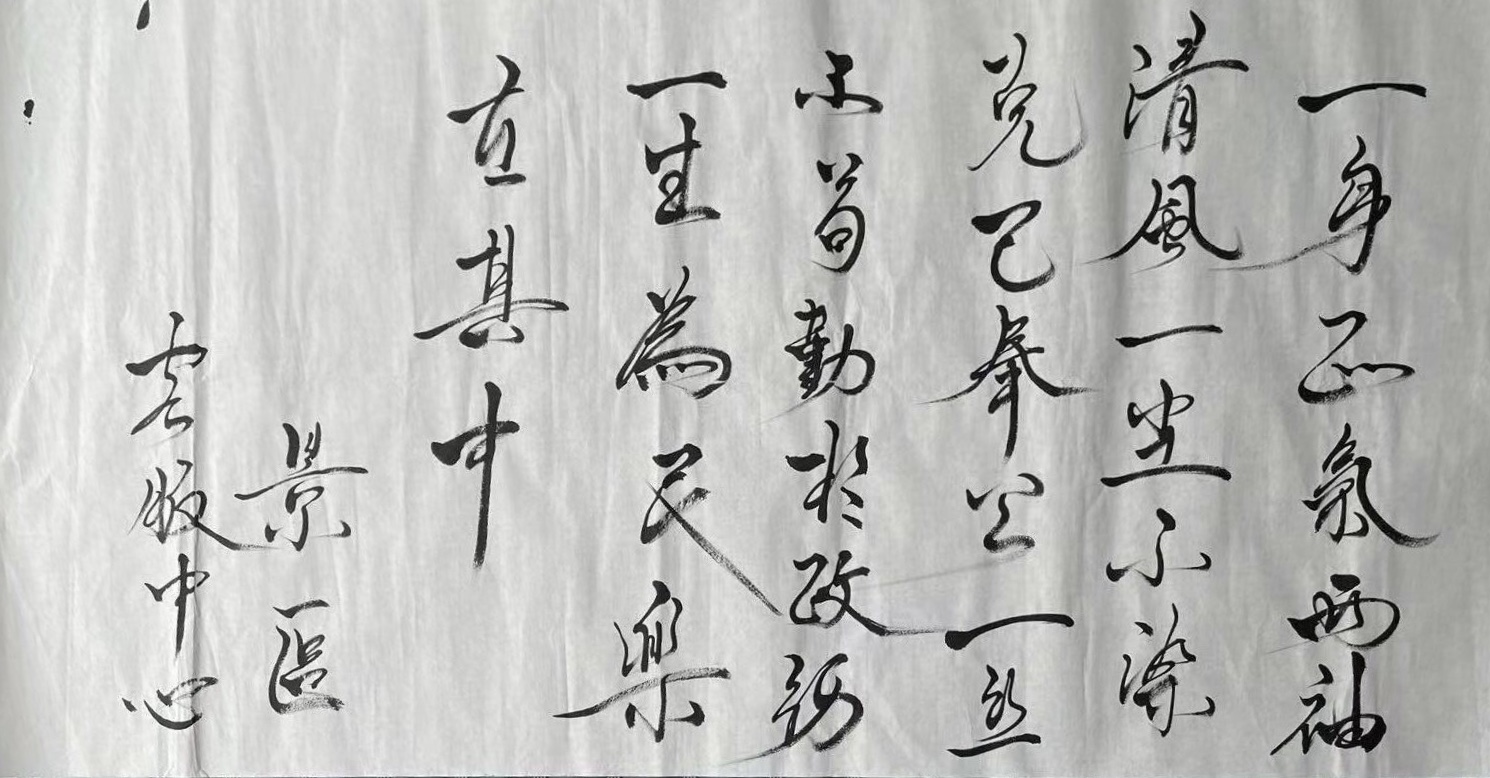 一身正氣两袖
清風一尘不染
克己奉公一丝
不苟勤於政務
一生為民樂
在其中
景區
客服中心